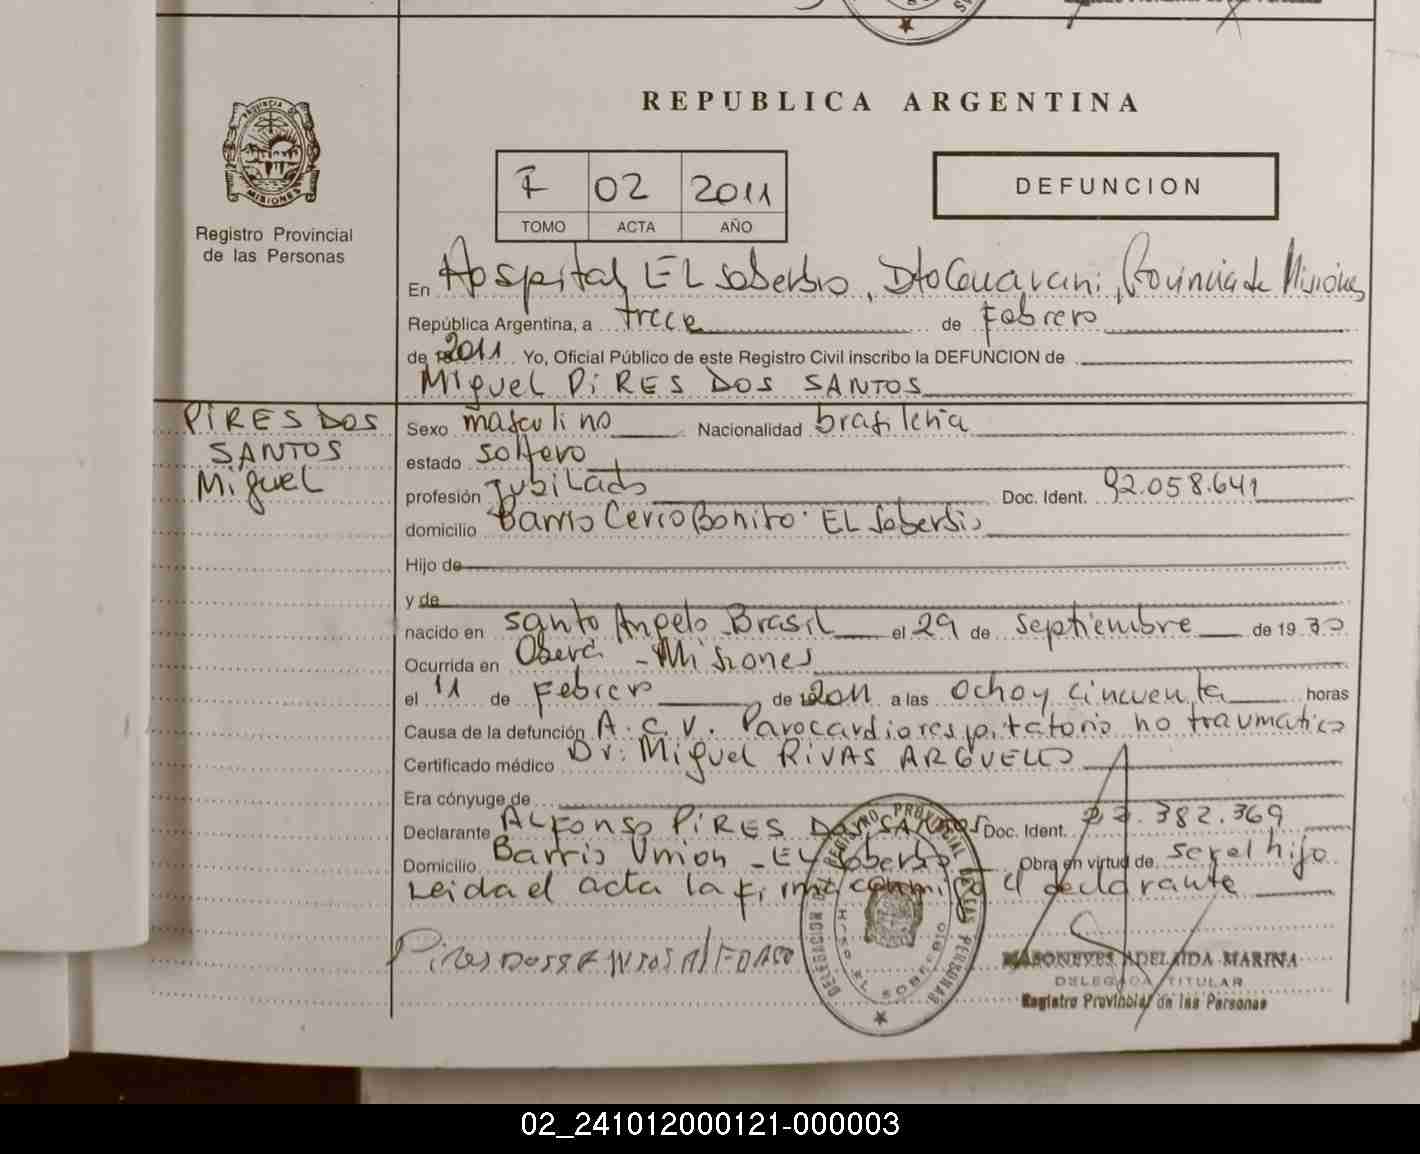 REPUBLICA ARGENTINA
PROVINCIA DE
MISIONES
Registro Provincial
de las Personas
F 02 2011
TOMO ACTA AÑO
DEFUNCION
En Hospital EL soberbio, Dto Guarani, Provincia de Misiones
República Argentina, a trece de Febrero
de 2011 Yo, Oficial Público de este Registro Civil inscribo la DEFUNCION de
Miguel PiRES DOS SANTOS
PiRES DOS
SANTOS
Miguel
Sexo masculino Nacionalidad brasileña
estado soltero
profesión Jubilado Doc. Ident. 92.058.641
domicilio Barrio Cerro Bonito. EL Soberbio
Hijo de
y de
nacido en Santo Angelo Brasil el 29 de septiembre de 19 30
Ocurrida en Oberá - Misiones
el 11 de Febrero de 2011 a las Ocho y cincuenta horas
Causa de la defunción A.C.V. Parocardiorespitatorio no traumatico
Certificado médico Dr: Miguel RIVAS ARGUELLO
Era cónyuge de
Declarante ALFONSO PiRES DOS SANTOS Doc. Ident. 22.382.369
Domicilio Barrio Union - EL Soberbio Obra en virtud de ser el hijo
Leida el acta la firma conmigo el declarante
REGISTRO PROVINCIAL DE LAS PERSONAS
EL SOBERBIO
MASONEVES ADELAIDA MARINA
DELEGADA TITULAR
Registro Provincial de las Personas
02_241012000121-000003